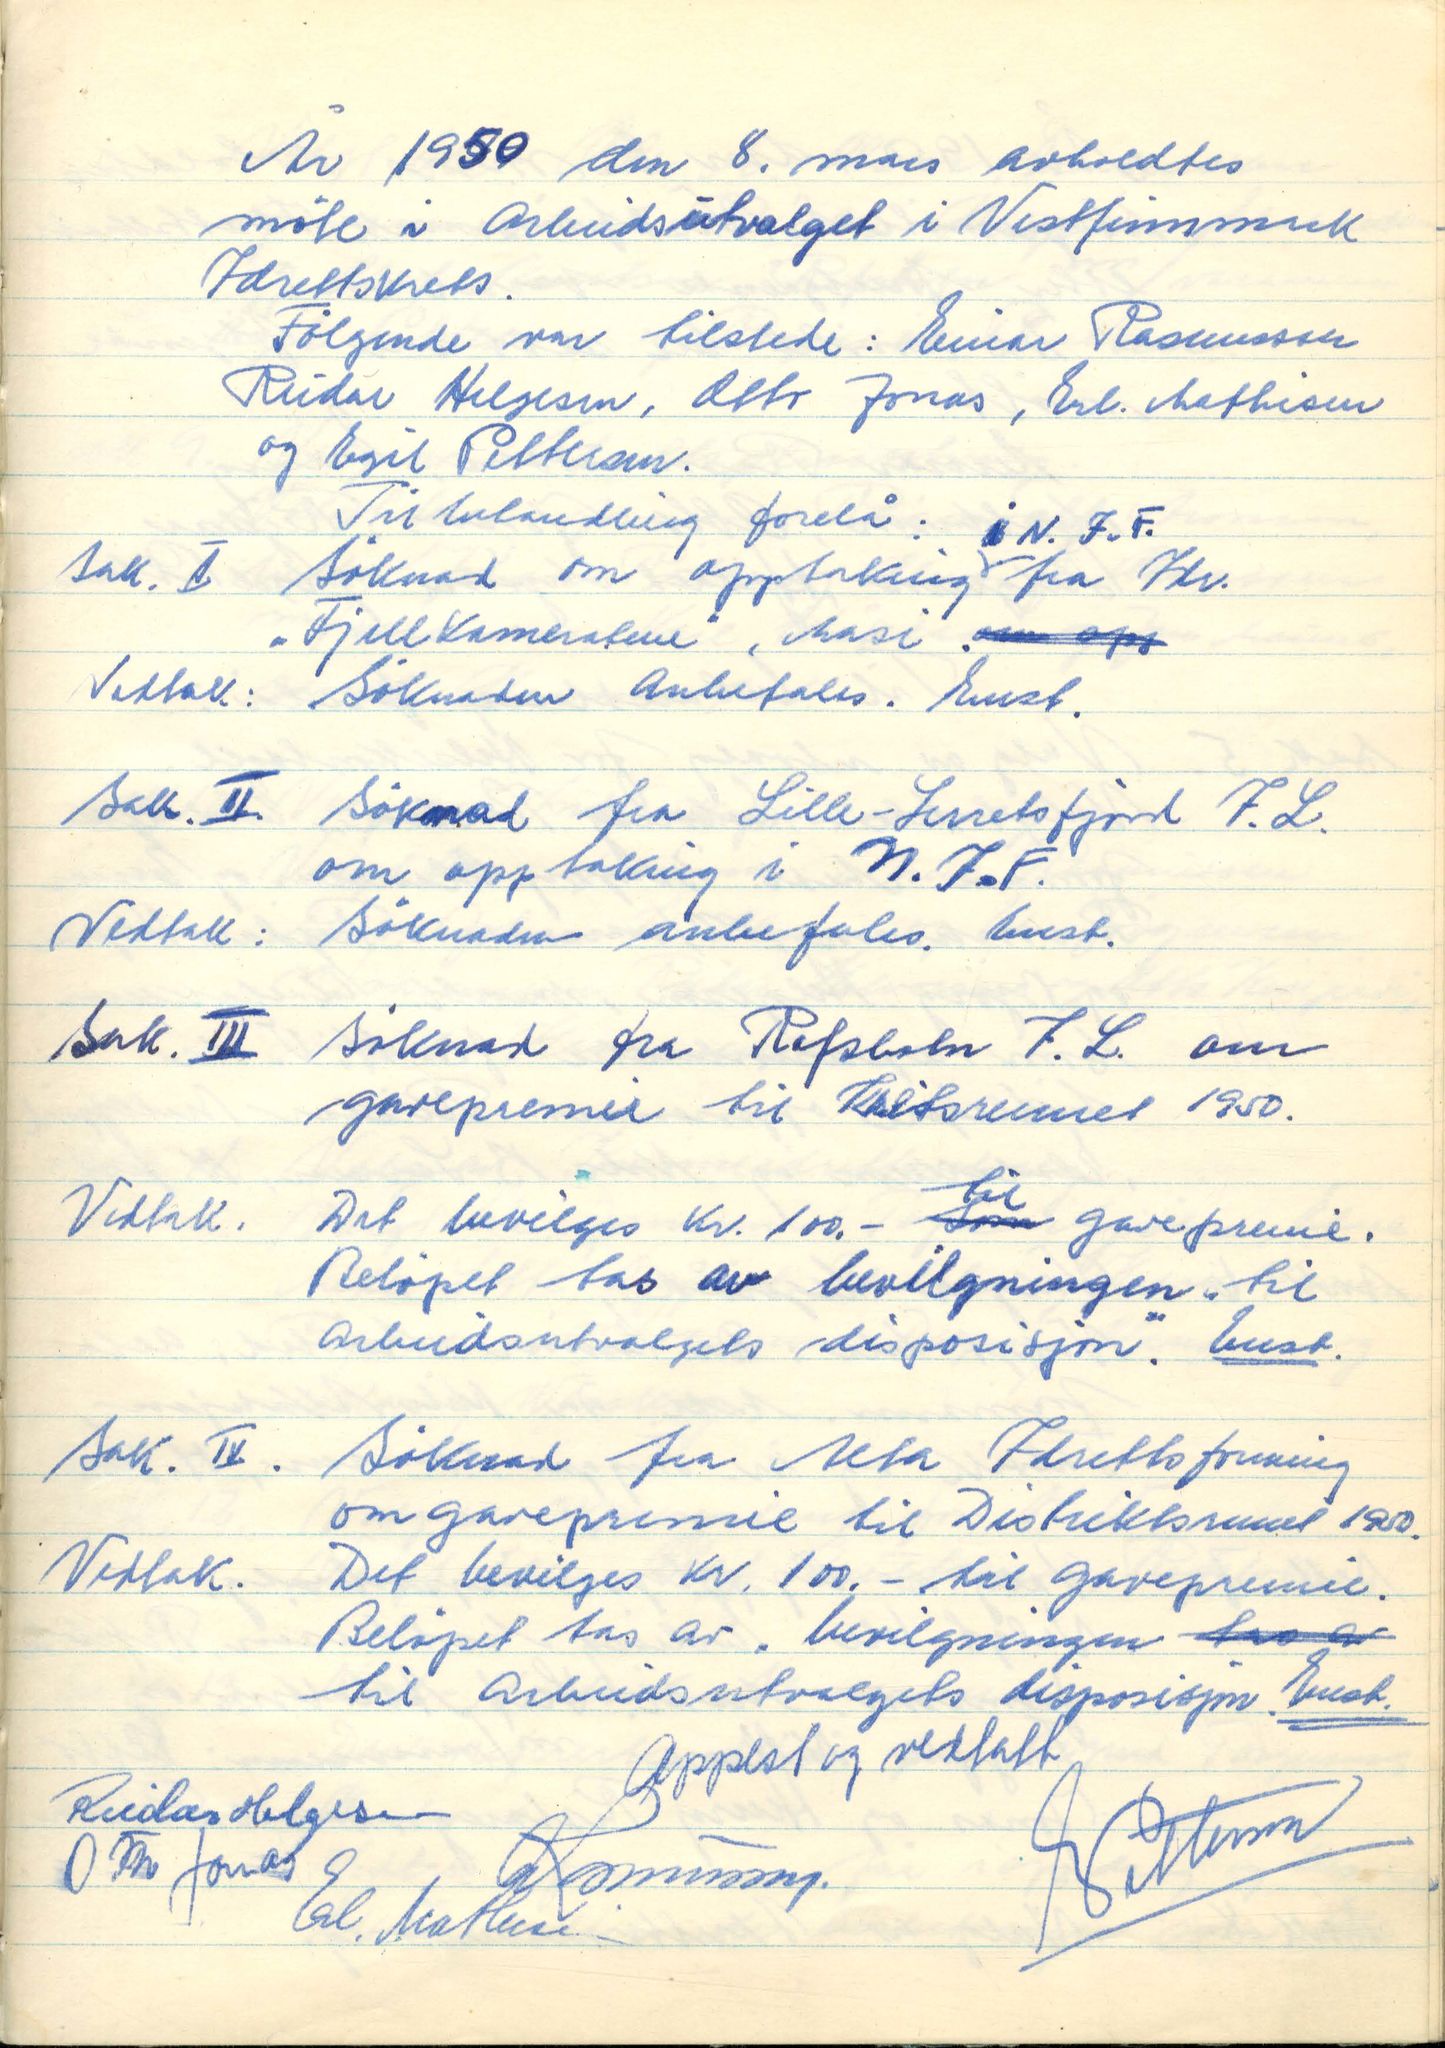 År 1950 den 8. mars avholdtes
møte i Arbeidsutvalget i Vestfinnmark
Idrettskrets.
Følgende var tilstede: Einar Rasmussen
Reidar Helgesen, Otto Jonas, Erl. Mathisen
og Egil Pettersen.
Til behandling forelå:
i N. I. F.
Sak. I Søknad om opptaking fra Idr.
"Fjellkameratene", Masi. om opp
Vedtak: Søknaden anbefales. Enst.
Sak. II. Søknad fra Lille-Lerretsfjord I. L.
om opptaking i N. I. F.
Vedtak: Søknaden anbefales. Enst.
Sak. III Søknad fra Rafsbotn I. L. om
gavepremie til 1950.
til
Vedtak. Det bevilges kr. 100.- som gavepremie.
Beløpet tas av bevilgningen "til
Arbeidsutvalgets disposisjon". Enst.
Sak. IV. Søknad fra Alta Idrettsforening
om gavepremie til Distriktsrennet 1950.
Vedtak. Det bevilges kr. 100.- til gavepremie.
Beløpet tas av "bevilgningen tas av
til Arbeidsutvalgets disposisjon. Enst.
Opplest og vedtatt
Reidar Helgesen
Otto Jonas
E Rasmussen.
E Pettersen
Erl. Mathisen